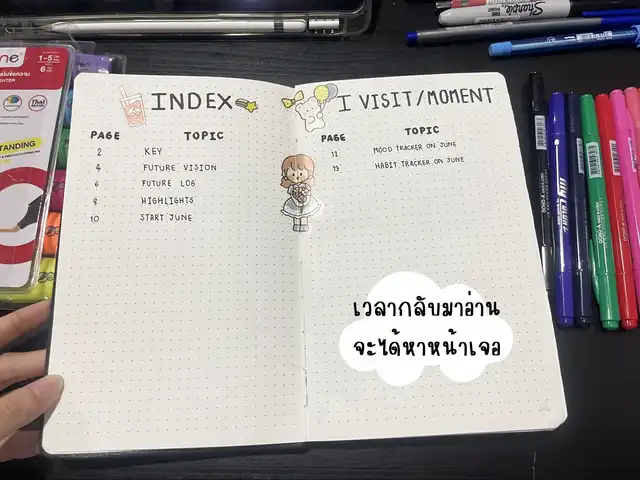 Sharpie
1-5
6
THAI
STANDING
INDEX
PAGE TOPIC
2 KEY
4 FUTURE VISION
6 FUTURE LOG
8 HIGHLIGHTS
10 START JUNE
I VISIT/MOMENT
PAGE TOPIC
12 MOOD TRACKER ON JUNE
13 HABIT TRACKER ON JUNE
เวลากลับมาอ่าน
จะได้หาหน้าเจอ
DONG-A
my color